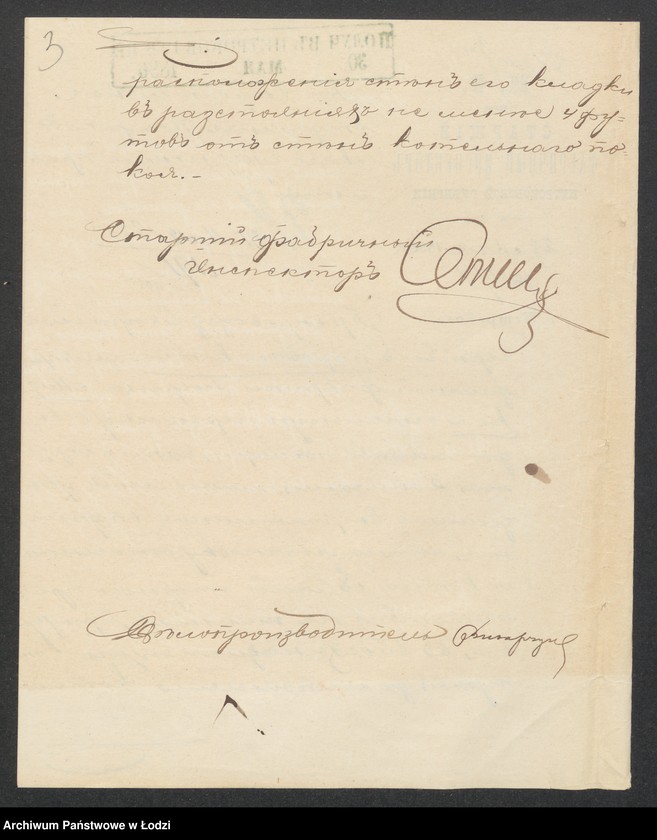 3
расположенія стѣнъ его кладки
въ разстояніяхъ не менѣе 4 фу-
товъ отъ стѣнъ котельнаго по-
коя.-
Старшій фабричный
Инспекторъ
Дѣлопроизводитель
Archiwum Państwowe w Łodzi